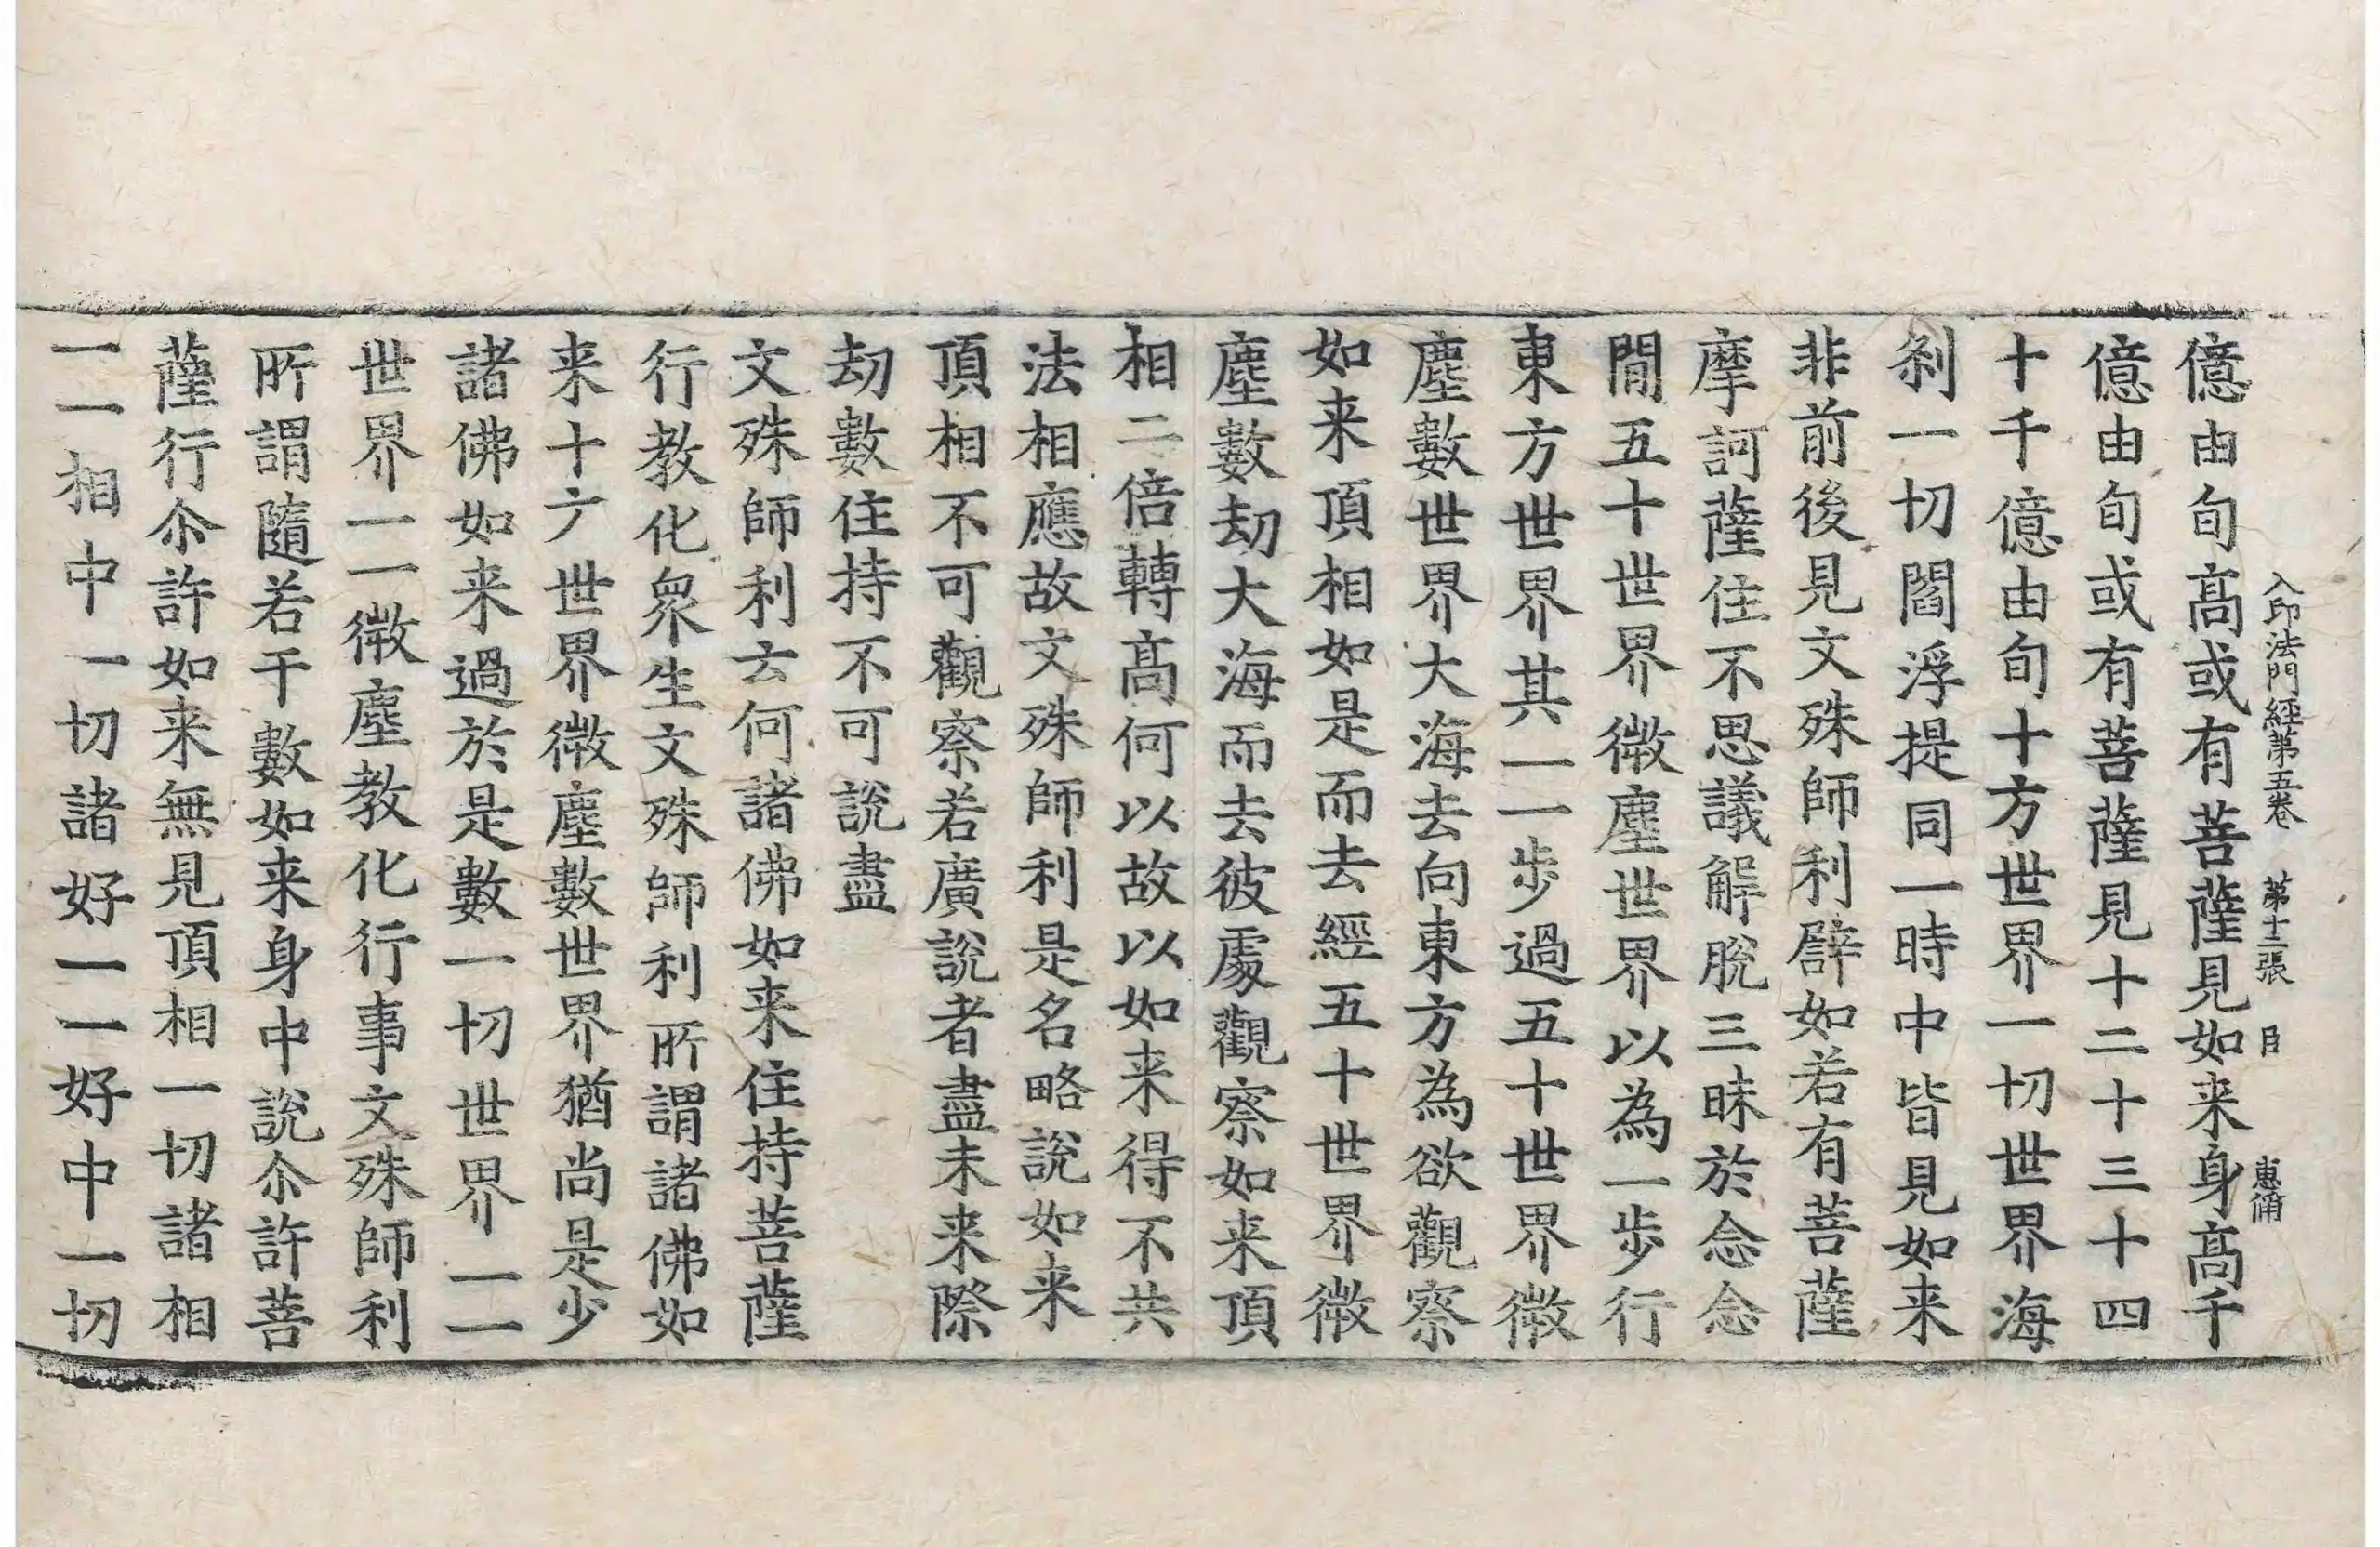 入印法門經第五卷　第十二張　臣　惠僃
億由旬高或有菩薩見如来身高千
億由旬或有菩薩見十二十三十四
十千億由旬十方世界一切世界海
刹一切閻浮提同一時中皆見如来
非前後見文殊師利譬如若有菩薩
摩訶薩住不思議解脫三昧於念念
閒五十世界微塵世界以為一步行
東方世界其一一步過五十世界微
塵數世界大海去向東方為欲觀察
如来頂相如是而去經五十世界微
塵數劫大海而去彼處觀察如来頂
相二倍轉高何以故以如来得不共
法相應故文殊師利是名略說如来
頂相不可觀察若廣說者盡未来際
劫數住持不可說盡
文殊師利云何諸佛如来住持菩薩
行教化衆生文殊師利所謂諸佛如
来十方世界微塵數世界猶尚是少
諸佛如来過於是數一切世界一一
世界一一微塵教化行事文殊師利
所謂隨若干數如来身中說尒許菩
薩行尒許如来無見頂相一切諸相
一一相中一切諸好一一好中一切